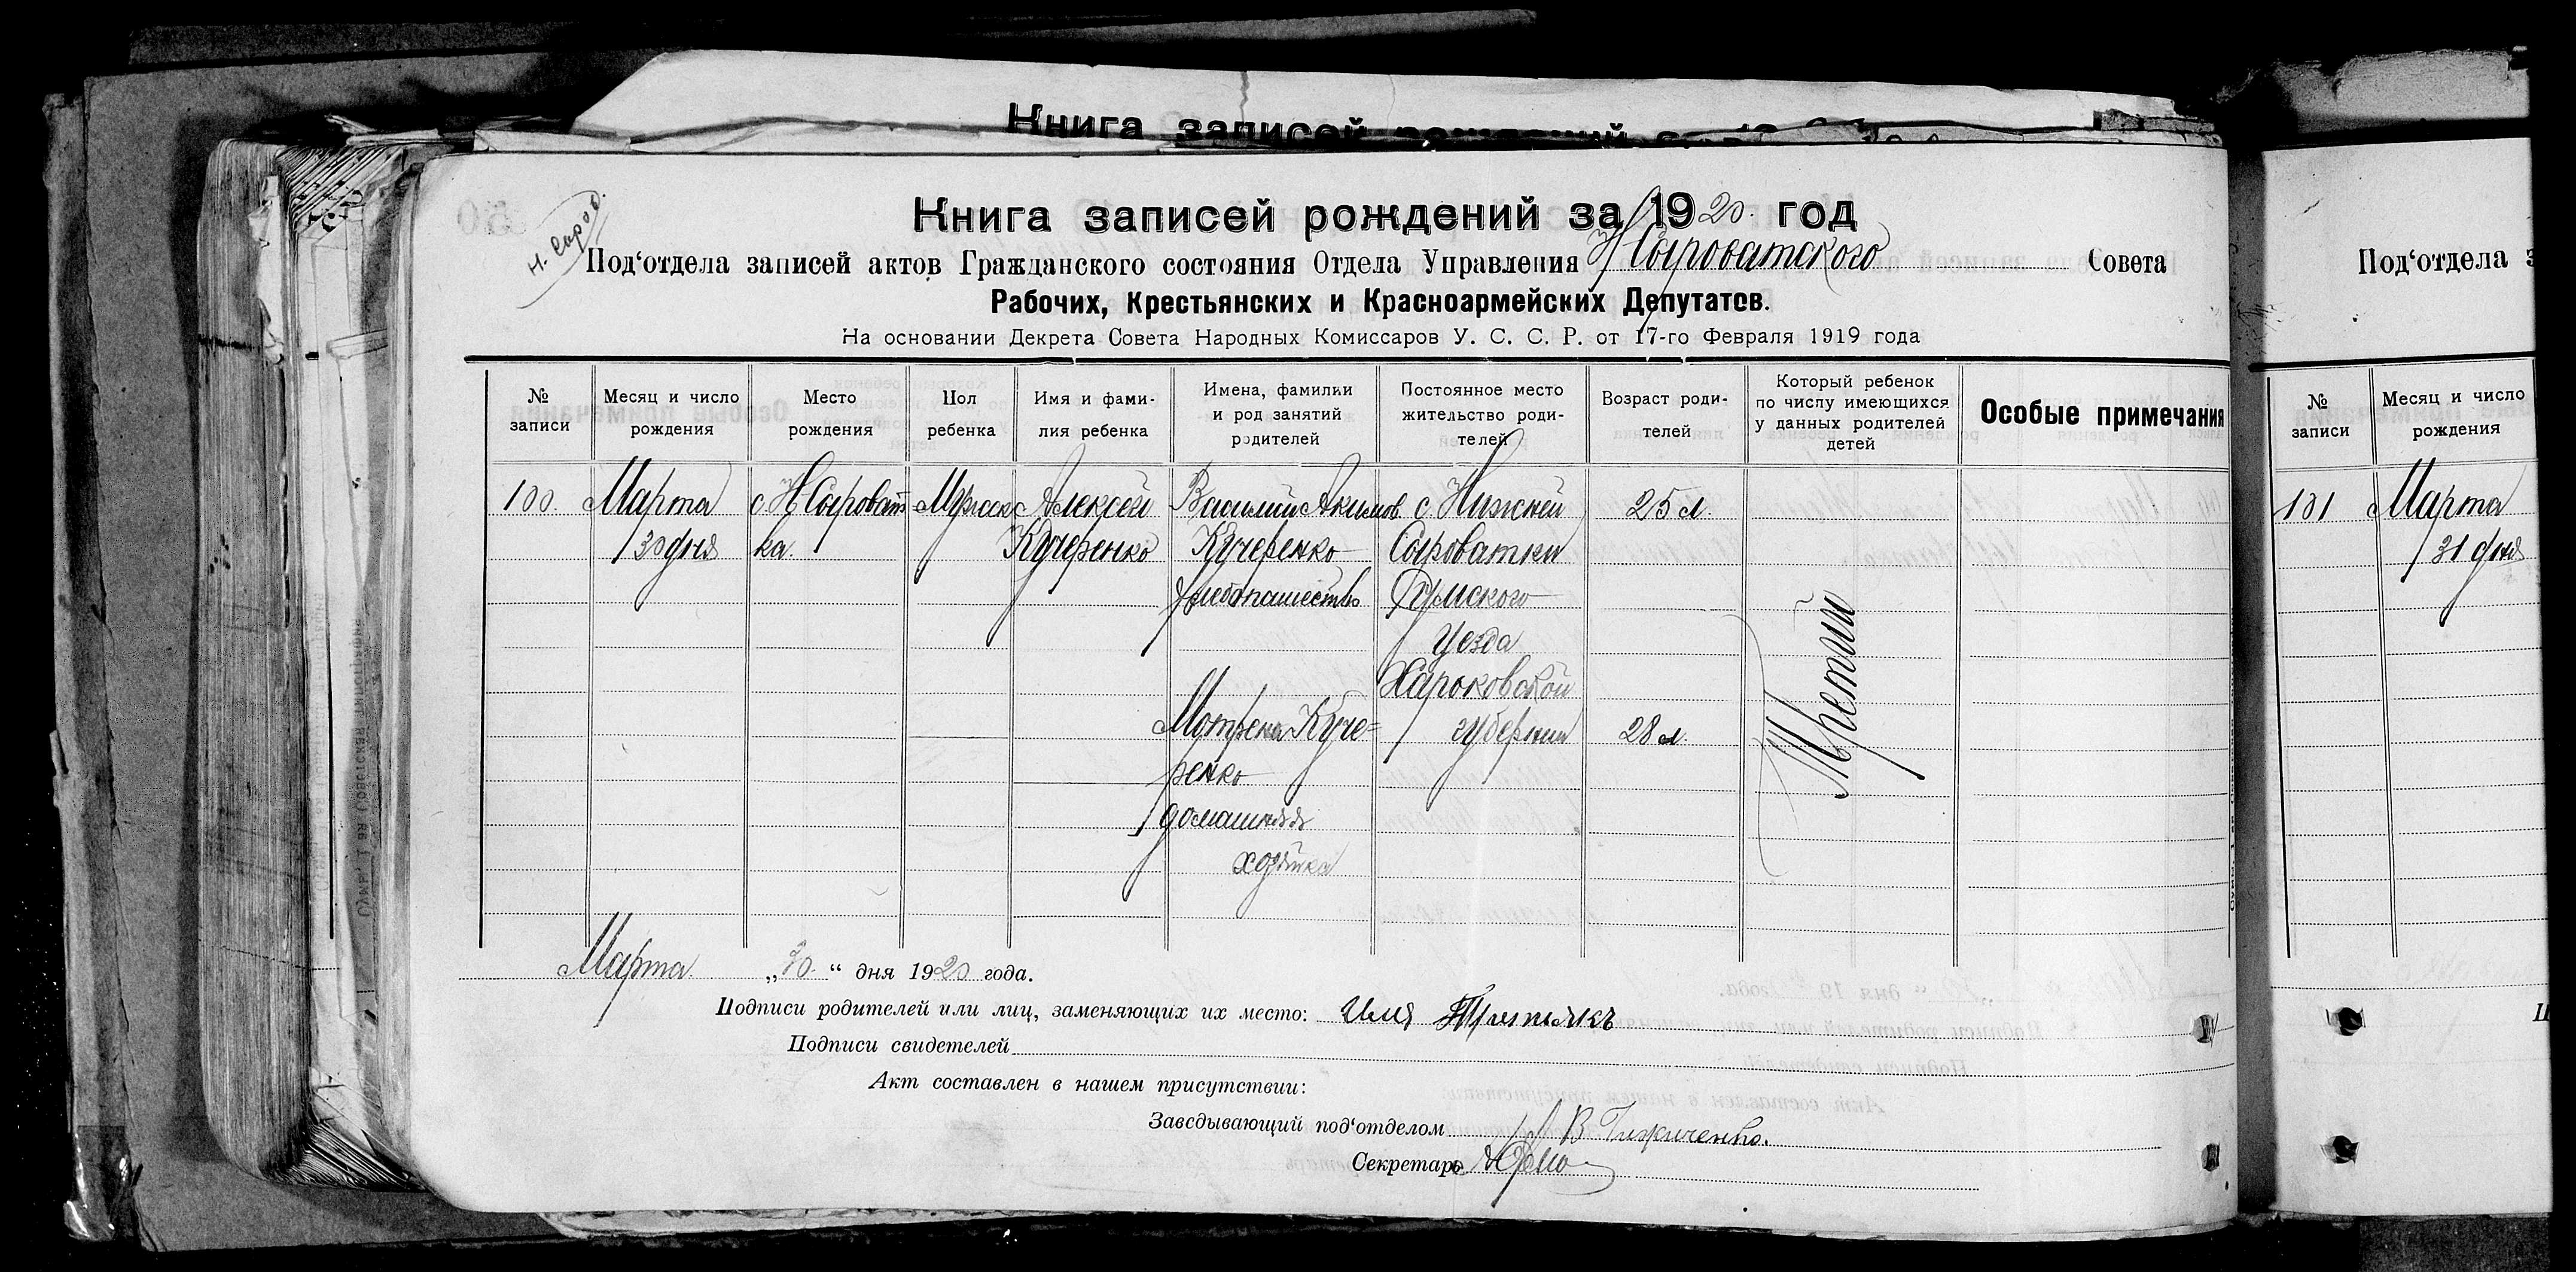 Книга записей рождений
Н. Сыров.
Книга записей рождений за 1920 год
Под‘отдела записей актов Гражданского состояния Отдела Управления Н Сыроватского Совета
Рабочих, Крестьянских и Красноармейских Депутатов.
На основании Декрета Совета Народных Комиссаров У. С. С. Р. от 17-го Февраля 1919 года
№ записи
Месяц и число рождения
Место рождения
Пол ребенка
Имя и фами-
лия ребенка
Имена, фамилии
и род занятий
родителей
Постоянное место
жительство роди-
телей
Возраст роди-
телей
Который ребенок
по числу имеющихся
у данных родителей
детей
Особые примечания
100. Марта с. Н Сыроват Мужск Алексей Василий Акимов с. Нижней 25 л.
30 дня ка. Кучеренко Кучеренко Сыроватки
хлебопашество Сумского
уезда
Харьковской
Мотрена Куче= губернии 28 л.
ренко
домашняя
хозяйка
Третий
Марта „30“ дня 1920 года.
Подписи родителей или лиц, заменяющих их место: Илия Третьякъ
Подписи свидетелей
Акт составлен в нашем присутствии:
Заведывающий под‘отделом В
Секретарь
Под‘отдела з
№ записи
Месяц и число
рождения
101 Марта
31 дня